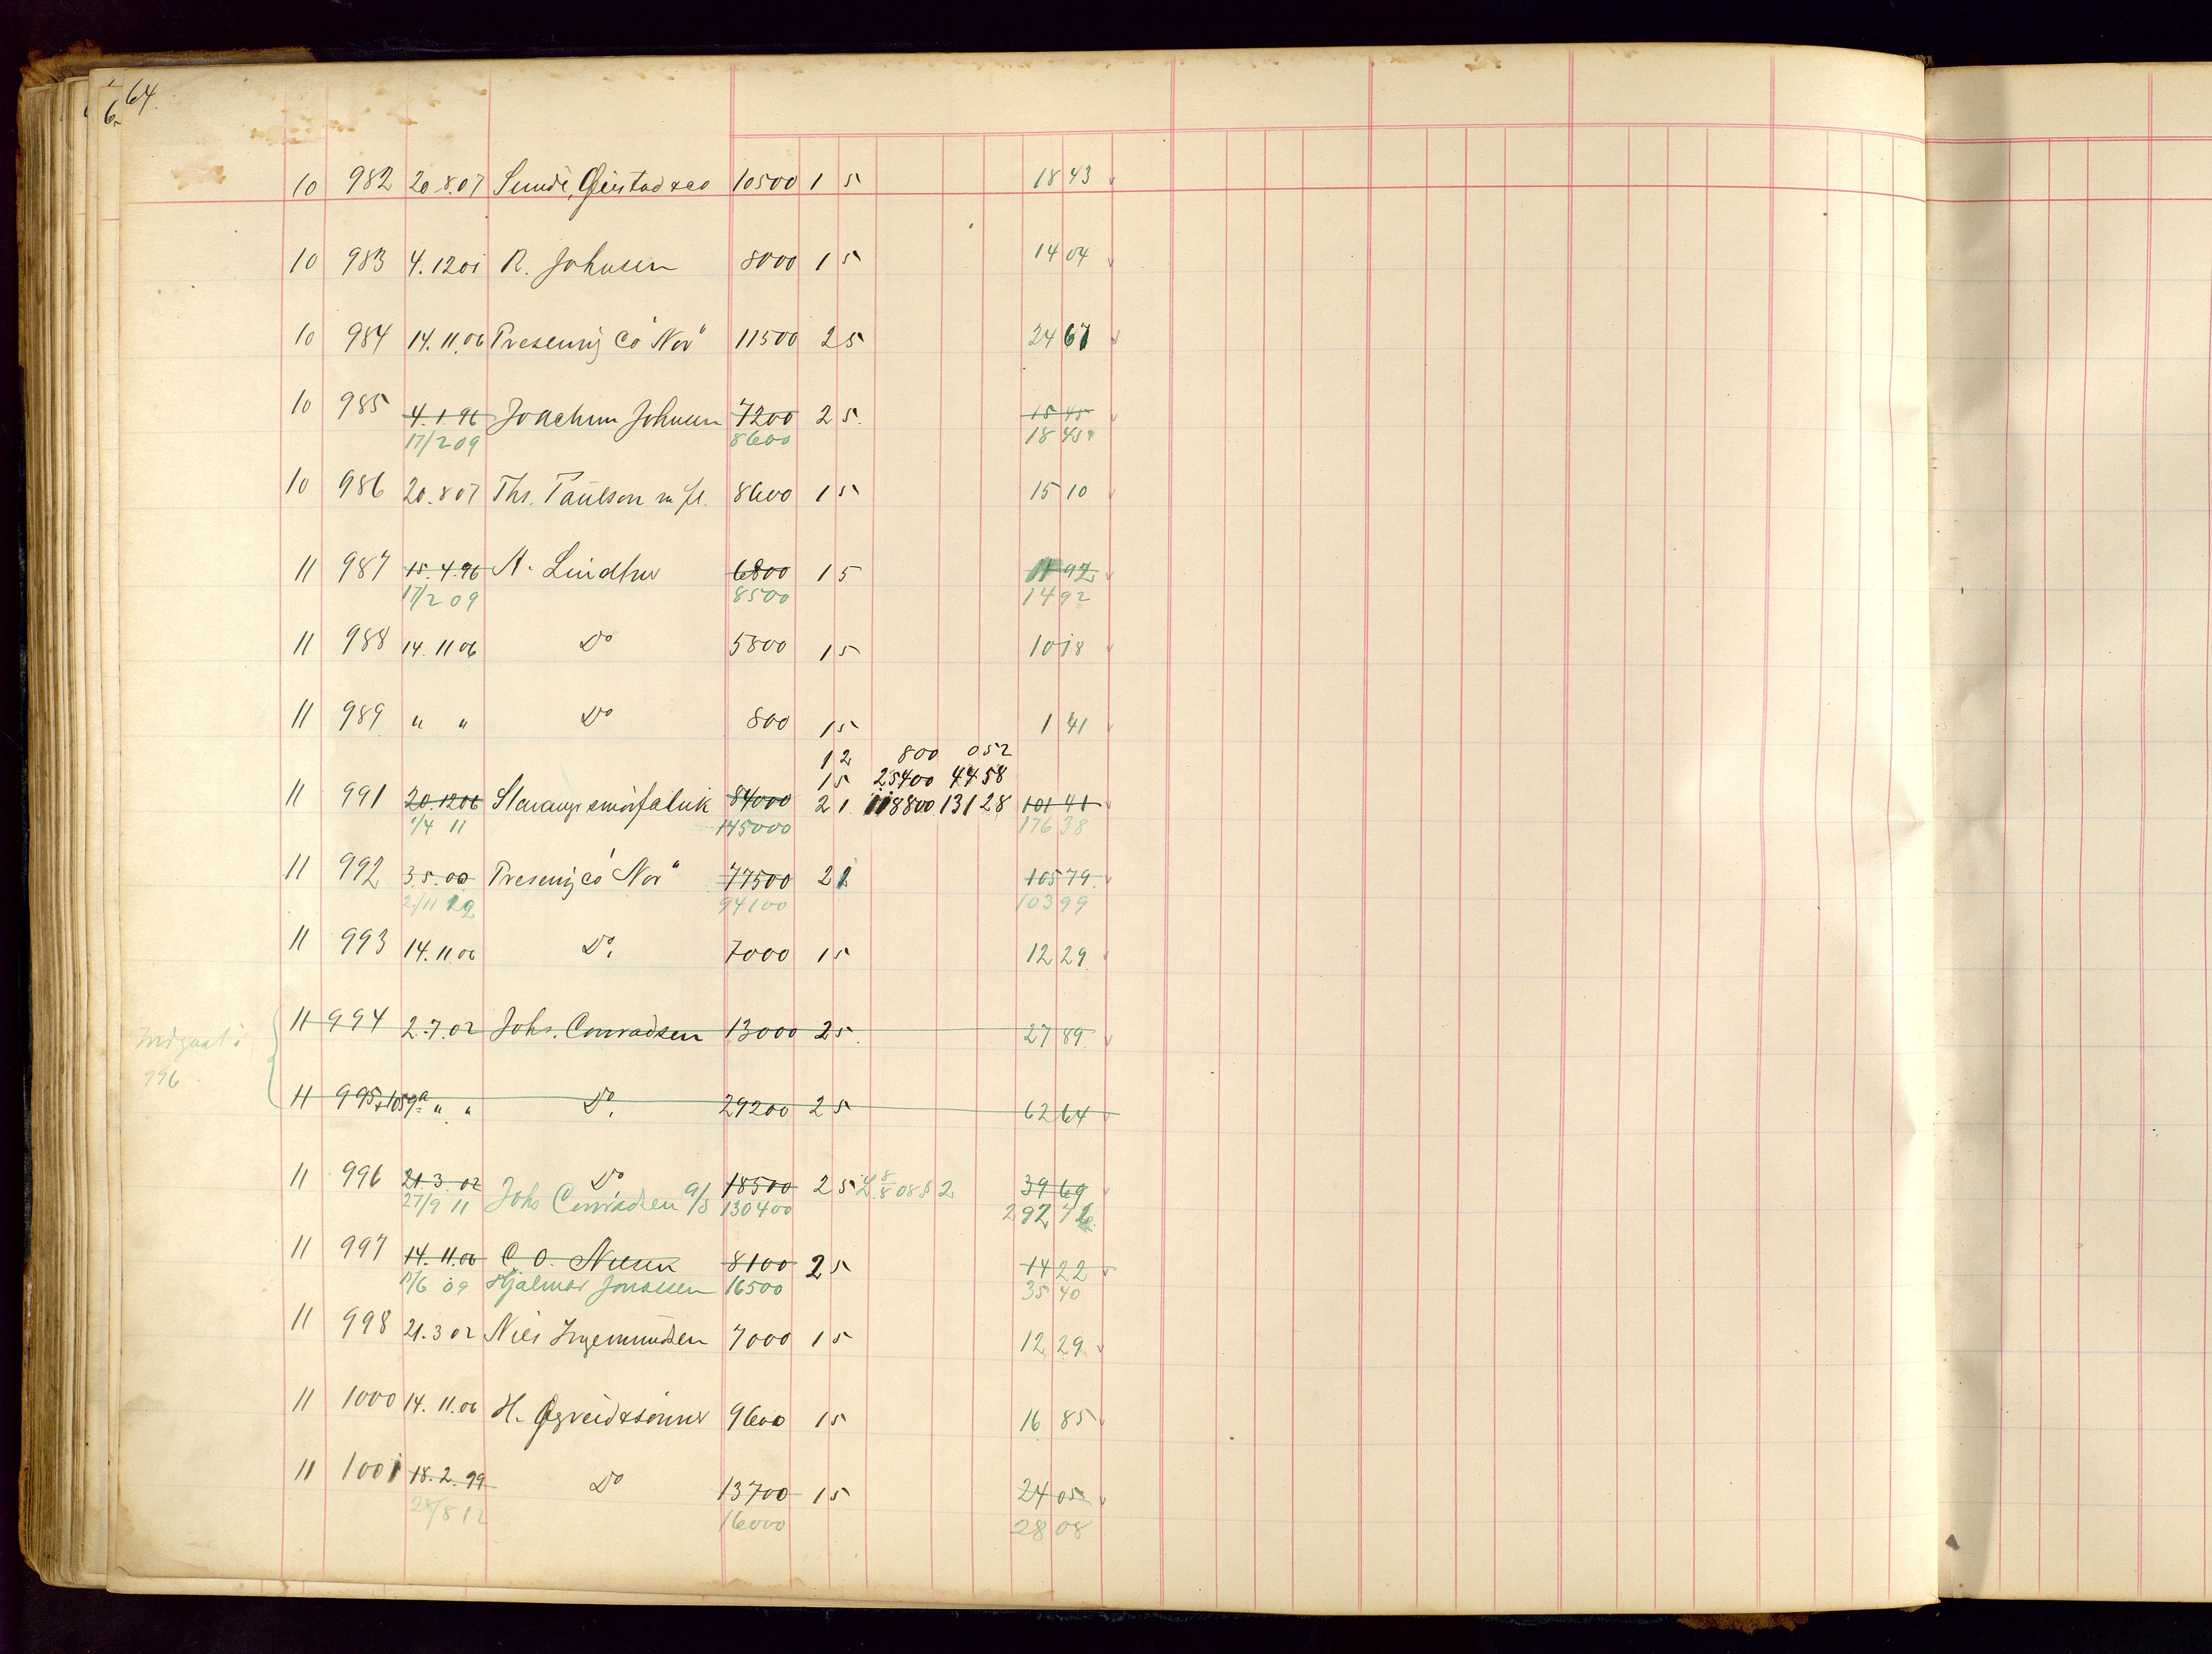 64.
6.
10 982 20.8.07 Sunde, Qvistad & co 10500 1 5 18 43
10 983 4.12 01 R. Johnsen 8000 1 5 14 04
10 984 14.11.06 Presenning Co "Nor" 11500 2 5 24 67
10 985 4.1.96 Joachim Johnsen 7200 2 5. 15 45
17/2 09 8600 18 45
10 986 20.8 07 Ths. Paulson m fl. 8600 1 5 15 10
11 987 15.4.96 A. Lindtner 6800 1 5 11 92
17/2 09 8500 14 92
11 988 14.11 06 Do 5800 1 5 10 18
11 989 " " Do 800 1 5 1 41
1 2 800 0 52
1 5 25400 44 58
11 991 20.12 06 84000 2 1 118800 131 28 101 41
1/4 11 145000 176 38
11 992 3.5.00 Presening co "Nor" 77500 2 1 105 79
2/11 12 94100 103 99
11 993 14.11.06 Do. 7000 1 5 12 29
11 994 2.7.02 Johs. Conradsen 13000 2 5. 27 89
Indgaat i
996
11 995+1059a " " Do. 29200 2 5 62 64
11 996 21 3 02 Do 18500 2 5 39 69
27/9 11 Johs Conradsen a/s 130400 292 72
11 997 14.11.06 C. O. 8100 2 5 14 22
17/6 09 Hjalmar Jonassen 16500 35 40
11 998 21.3 02 Niels Ingemundsen 7000 1 5 12 29
11 1000 14.11.06 H. Øgreid & sønner 9600 1 5 16 85
11 1001 18.2.99 Do 13700 1 5 24 05
28/8 12 16000 28 08